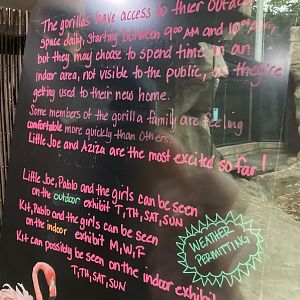 The gorillas have access to thier outdoor
space daily, starting between 9:00 AM and 10:00 AM,
but they may choose to spend time in an
indoor area, not visible to the public, as they're
getting used to their new home.
Some members of the gorilla family are feeling
comfortable more quickly than others.
Little Joe and Aziza are the most excited so far!
Little Joe, Pablo and the girls can be seen
on the outdoor exhibit T, TH, SAT, SUN
Kit, Pablo and the girls can be seen
on the indoor exhibit M, W, F
Kit can possibly be seen on the indoor exhibit
T, TH, SAT, SUN
WEATHER
PERMITTING